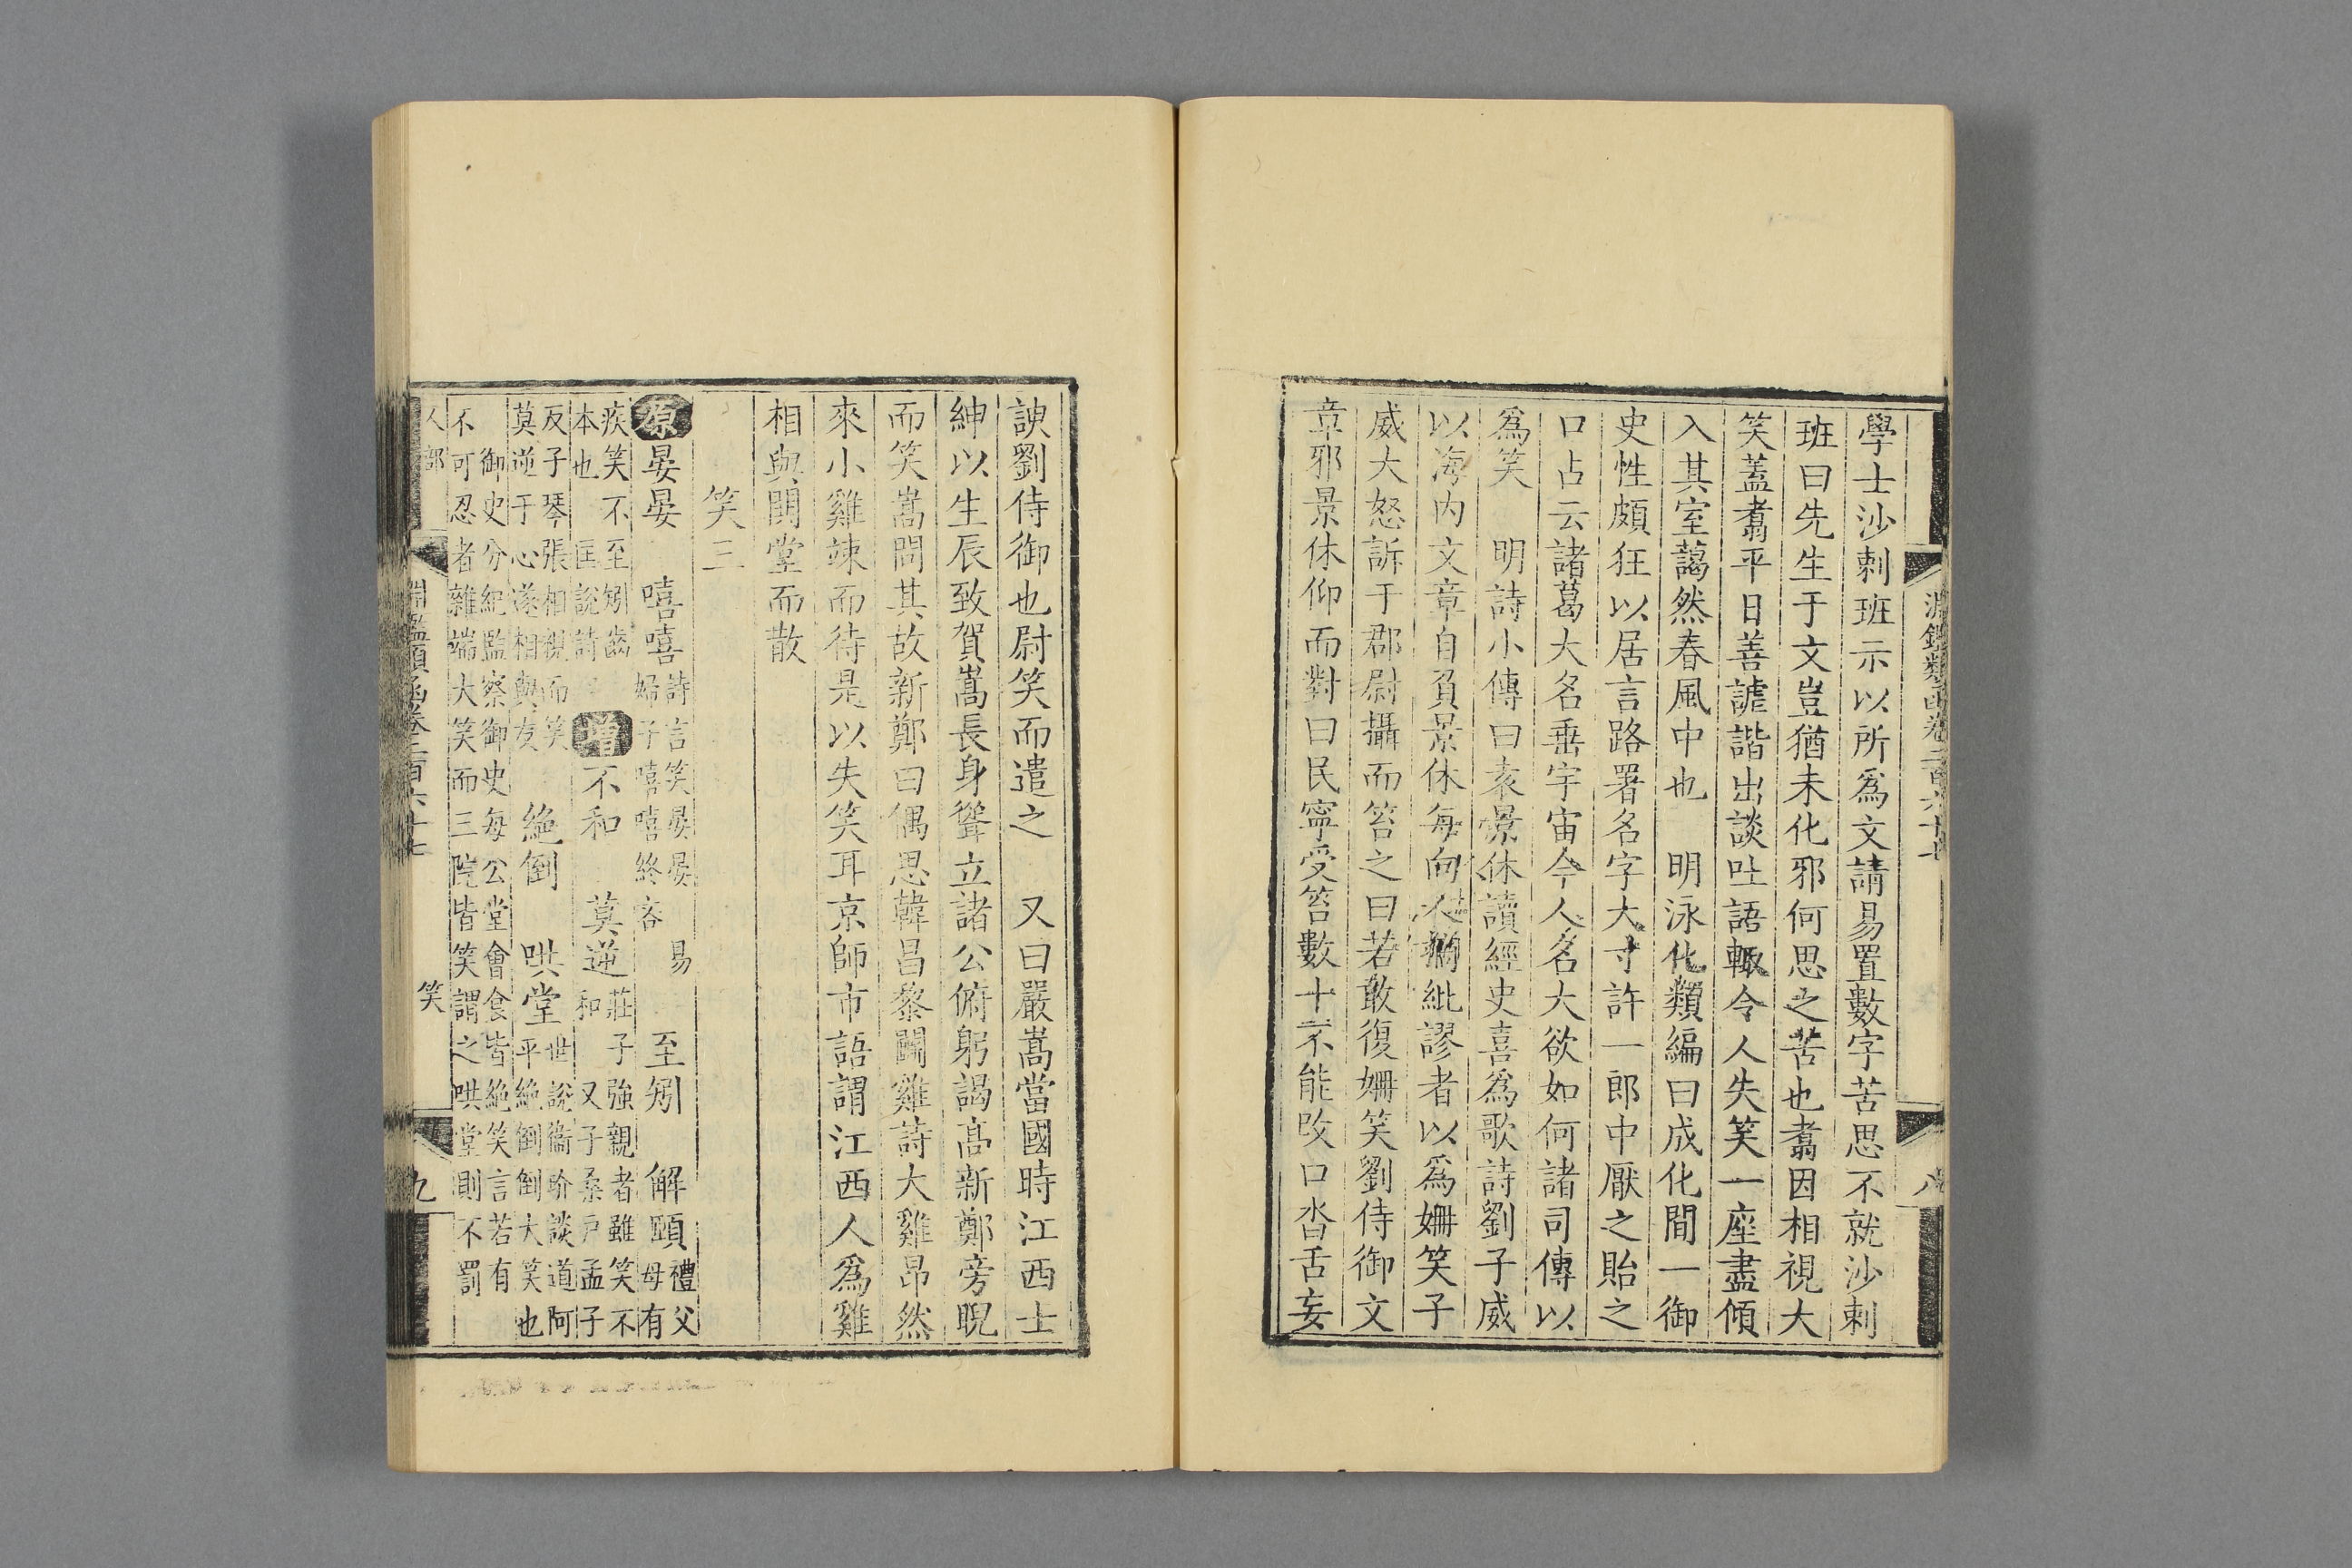 淵鑑類函卷二百六十七
八
學士沙剌班示以所爲文請易置數字苦思不就沙剌
班曰先生于文豈猶未化邪何思之苦也翥因相視大
笑蓋翥平日善謔諧出談吐語輙令人失笑一座盡傾
入其室藹然春風中也　明泳化類編曰成化間一御
史性頗狂以居言路署名字大寸許一郎中厭之貽之
口占云諸葛大名垂宇宙今人名大欲如何諸司傳以
爲笑　明詩小傳曰袁景休讀經史喜爲歌詩劉子威
以海内文章自負景休每向人摘紕謬者以爲姍笑子
威大怒訴于郡尉攝而笞之曰若敢復姍笑劉侍御文
章邪景休仰而對曰民寧受笞數十不能改口沓舌妄
諛劉侍御也尉笑而遣之　又曰嚴嵩當國時江西士
紳以生辰致賀嵩長身聳立諸公俯躬謁高新鄭旁睨
而笑嵩問其故新鄭曰偶思韓昌黎鬬雞詩大雞昂然
來小雞竦而待是以失笑耳京師市語謂江西人爲雞
相與鬨堂而散
笑三
原晏晏　嘻嘻詩言笑晏晏　易婦子嘻嘻終吝　至矧　解頤禮父母有
疾笑不至矧齒本也　匡說詩　增不和　莫逆莊子強親者雖笑不和　又子桑戶孟子
反子琴張相視而笑莫逆于心遂相與友　絶倒　哄堂世說衞玠談道阿平絶倒倒大笑也
御史分紀監察御史每公堂會食皆絶笑言若有不可忍者雜端大笑而三院皆笑謂之哄堂則不罰
人部
淵鑑類函卷二百六十七
笑
九